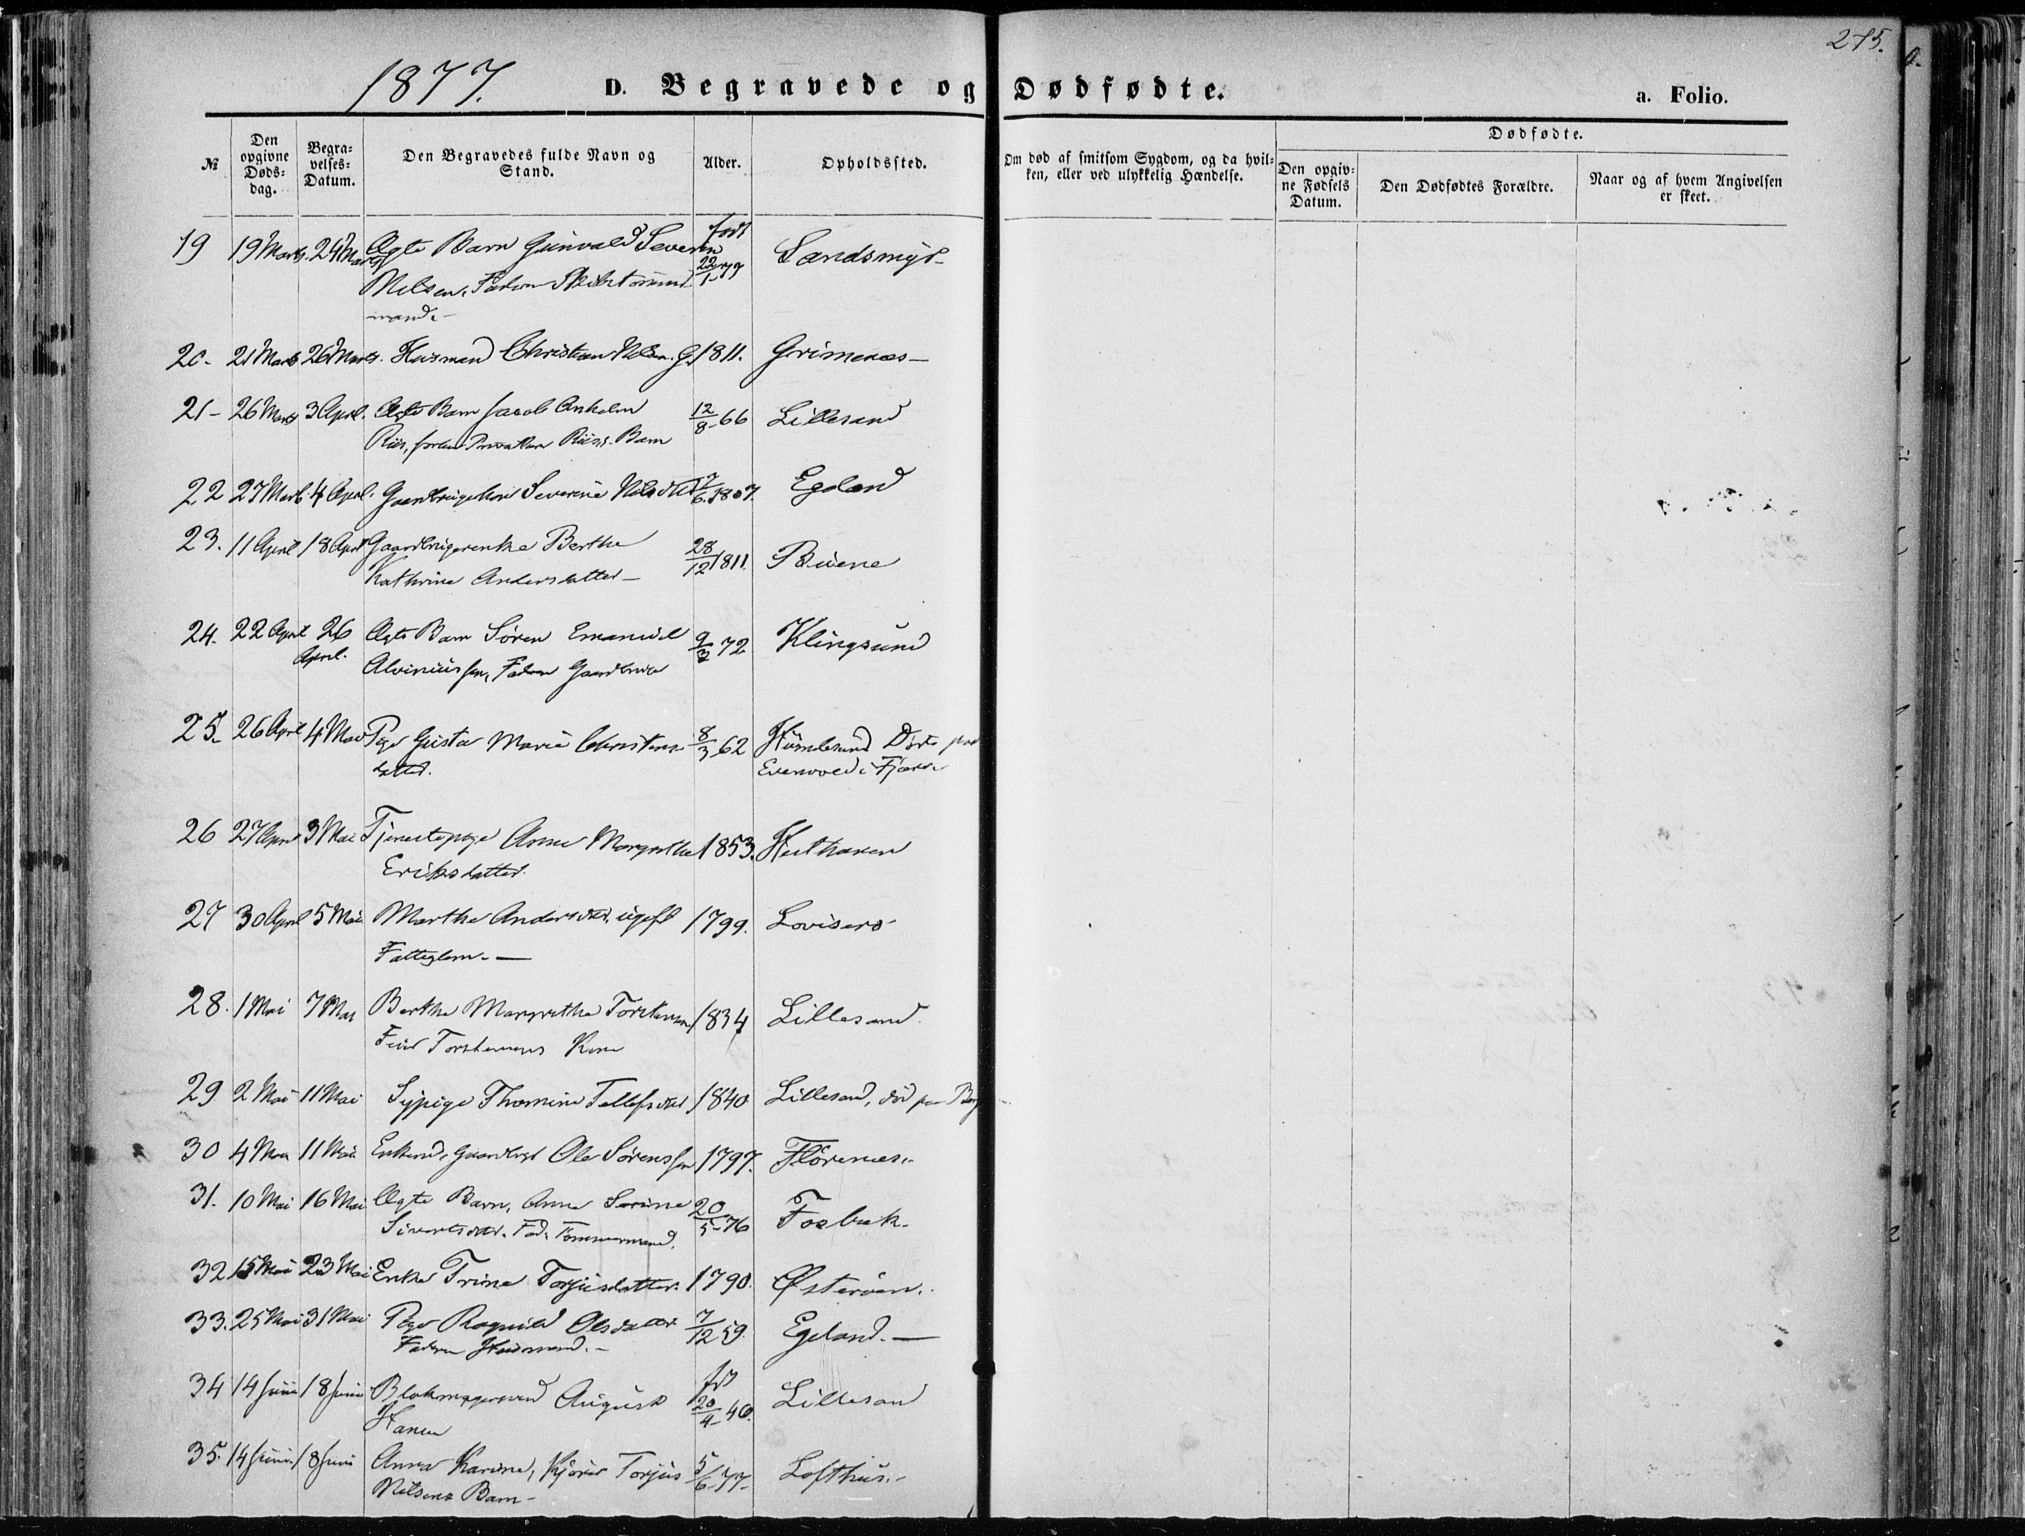 275.
1877. D. Begravede og Dødfødte. a. Folio.
№ Den opgivne Døds-dag. Begra-velses-Datum. Den Begravedes fulde Navn og Stand. Alder. Opholdssted. Om død af smitsom Sygdom, og da hvil-ken, eller ved ulykkelig Hændelse. Dødfødte. Den opgiv-ne Fødsels Datum. Den Dødfødtes Forældre. Naar og af hvem Angivelsen er skeet.
19 19 Marts 24 Marts Ægte Barn Gunvald Severin født 22/1 Sandsmyr
Nilsen, Faderen
mand.
20. 21 Marts 26 Marts. Husmand Christian Nilsen G. 1811. Grimenæs
21 26 Marts 3 April. Ægte Barn Jacob Anholm 12/8 66 Lillesand
Riis, Riis's Barn
22 27 Marts 4 April. Severine Nilsdtr 7/6 1807. Egeland
23. 11 April 18 April Gaardbrugerenke Berthe 28/12 1811. Buene
Kathrine Andersdatter
24. 22 April 26 April. Ægte Barn Søren Emanuel 9/3 72 Klingsund
Alviniussen, Faderen Gaardbruger
25. 26 April 4 Mai Pige Gusta Maria Christens 8/3 62 Humlesund Døde paa
datter. Evenvold i Fjære
26 27 April 3 Mai Tjenestepige Anne Margrethe 1853.
Eriksdatter.
27 30 April 5 Mai Marthe Andersdtr, ugift 1799. Lovisero
Fattiglem.
28. 1 Mai 7 Mai Berthe Margrethe Torstensen 1834 Lillesand.
Torstensens Kone
29 2 Mai 11 Mai Sypige Thomine Tellefsdtr 1840 Lillesand, død paa
30 4 Mai 11 Mai Enkemd, Gaardbrgr Ole Sørenssen 1797. Flørenæs.
31. 10 Mai 16 Mai Ægte Barn, Anne Serine 20/5 76 Fosbæk.
Sivertsdtr. Fad. Tømmermand.
32 15 Mai 23 Mai Enke Trine Torjusdatter. 1790. Østerøen.
33. 25 Mai 31 Mai Pige Ragnild Olsdatter 7/12 59. Egeland.
Faderen Husmand.
34 14 Juni 18 Juni Blokmagersvend August fød 20/4 46. Lillesand
Hansen
35. 14 Juni. 18 Juni Anna Karine, Kjører Torjus 5/6 77 Lofthus.
Nilsens Barn